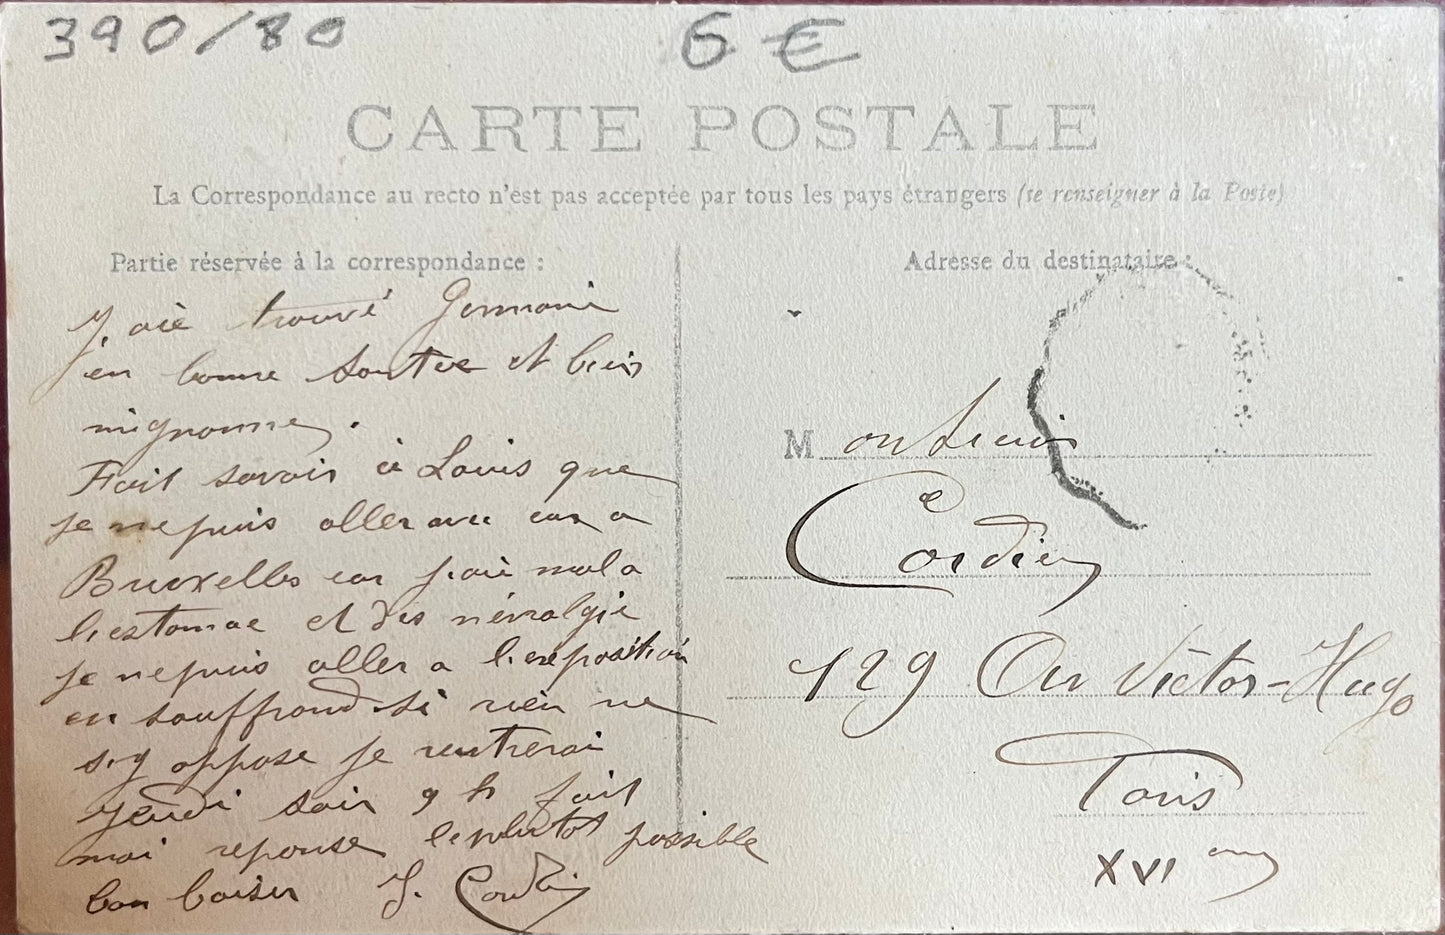 390/80
6 €
CARTE POSTALE
La Correspondance au recto n'est pas acceptée par tous les pays étrangers (se renseigner à la Poste)
Partie réservée à la correspondance :
J. aiè trouvé Germaine
en bonne santee et bien
mignonne.
Fait savoir à Louis que
je ne puis aller avec eux a
Bruxelles car j.ai mal a
l.estomac et des névralgie
je ne puis aller a l.exposition
en souffrand. Si rien ne
s.y oppose je rentrerai
jeudi soir 9 h fait
moi reponse le plutot possible
bon baiser J. Cordier
Adresse du destinataire :
Monsieur
Cordier
129 Av Victor-Hugo
Paris
XVI em